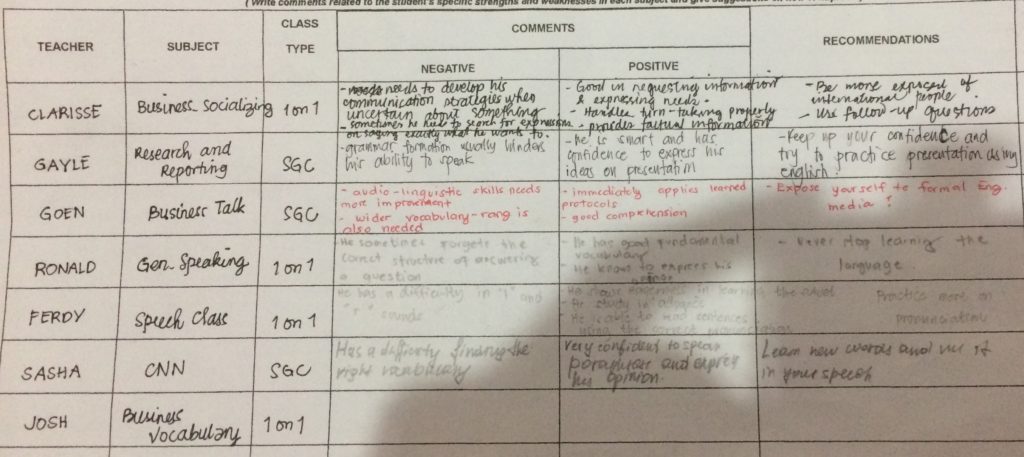 ( Write comments related to the student's specific strengths and weaknesses in each subject and give suggestions on how
TEACHER
SUBJECT
CLASS
TYPE
COMMENTS
NEGATIVE
POSITIVE
RECOMMENDATIONS
CLARISSE
Business Socializing
1 on 1
- needs to develop his
communication strategies when
uncertain about something
- sometimes he need to search for expressions
on saying exactly what he wants to.
- Good in requesting information
& expressing needs.
- Handles turn-taking properly
- provides factual information
- Be more exposed of
international people
- Use follow-up questions
GAYLE
Research and
Reporting
SGC
- grammar formation usually hinders
his ability to speak
- He is smart and has
confidence to express his
ideas on presentation
- Keep up your confidence and
try to practice presentation using
english.
GOEN
Business Talk
SGC
- audio-linguistic skills needs
more improvement
- wider vocabulary-rang is
also needed
- immediately applies learned
protocols
- good comprehension
- Expose yourself to formal Eng.
media !
RONALD
Gen. Speaking
1 on 1
He sometimes forgets the
correct structure of answering
a question
- He has good fundamental
vocabulary
- He know to express his
- Never stop learning the
language
FERDY
Speech Class
1 on 1
He has a difficulty in "l" and
"r" sounds
- He is able to read sentences
using the correct
Practice more on
pronunciation
SASHA
CNN
SGC
Has a difficulty finding the
right vocabulary
Very confident to speak
paraphrase and express
his opinion.
Learn new words and use it
in your speech
JOSH
Business
Vocabulary
1 on 1